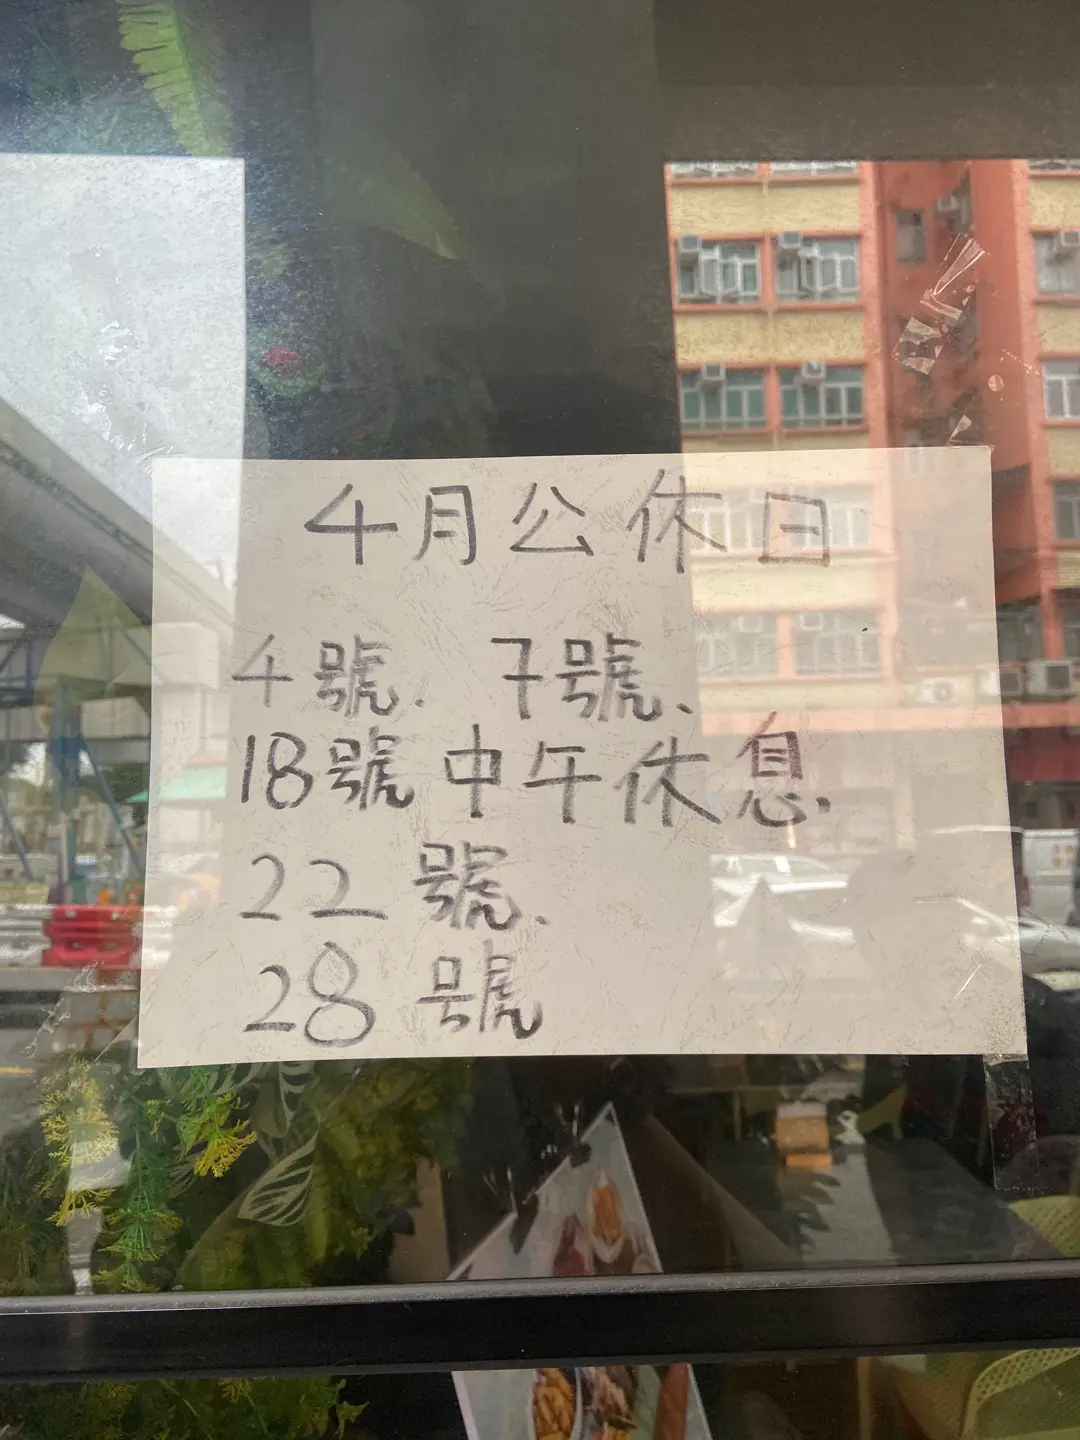 4月公休日
4號. 7號、
18號中午休息.
22號.
28號